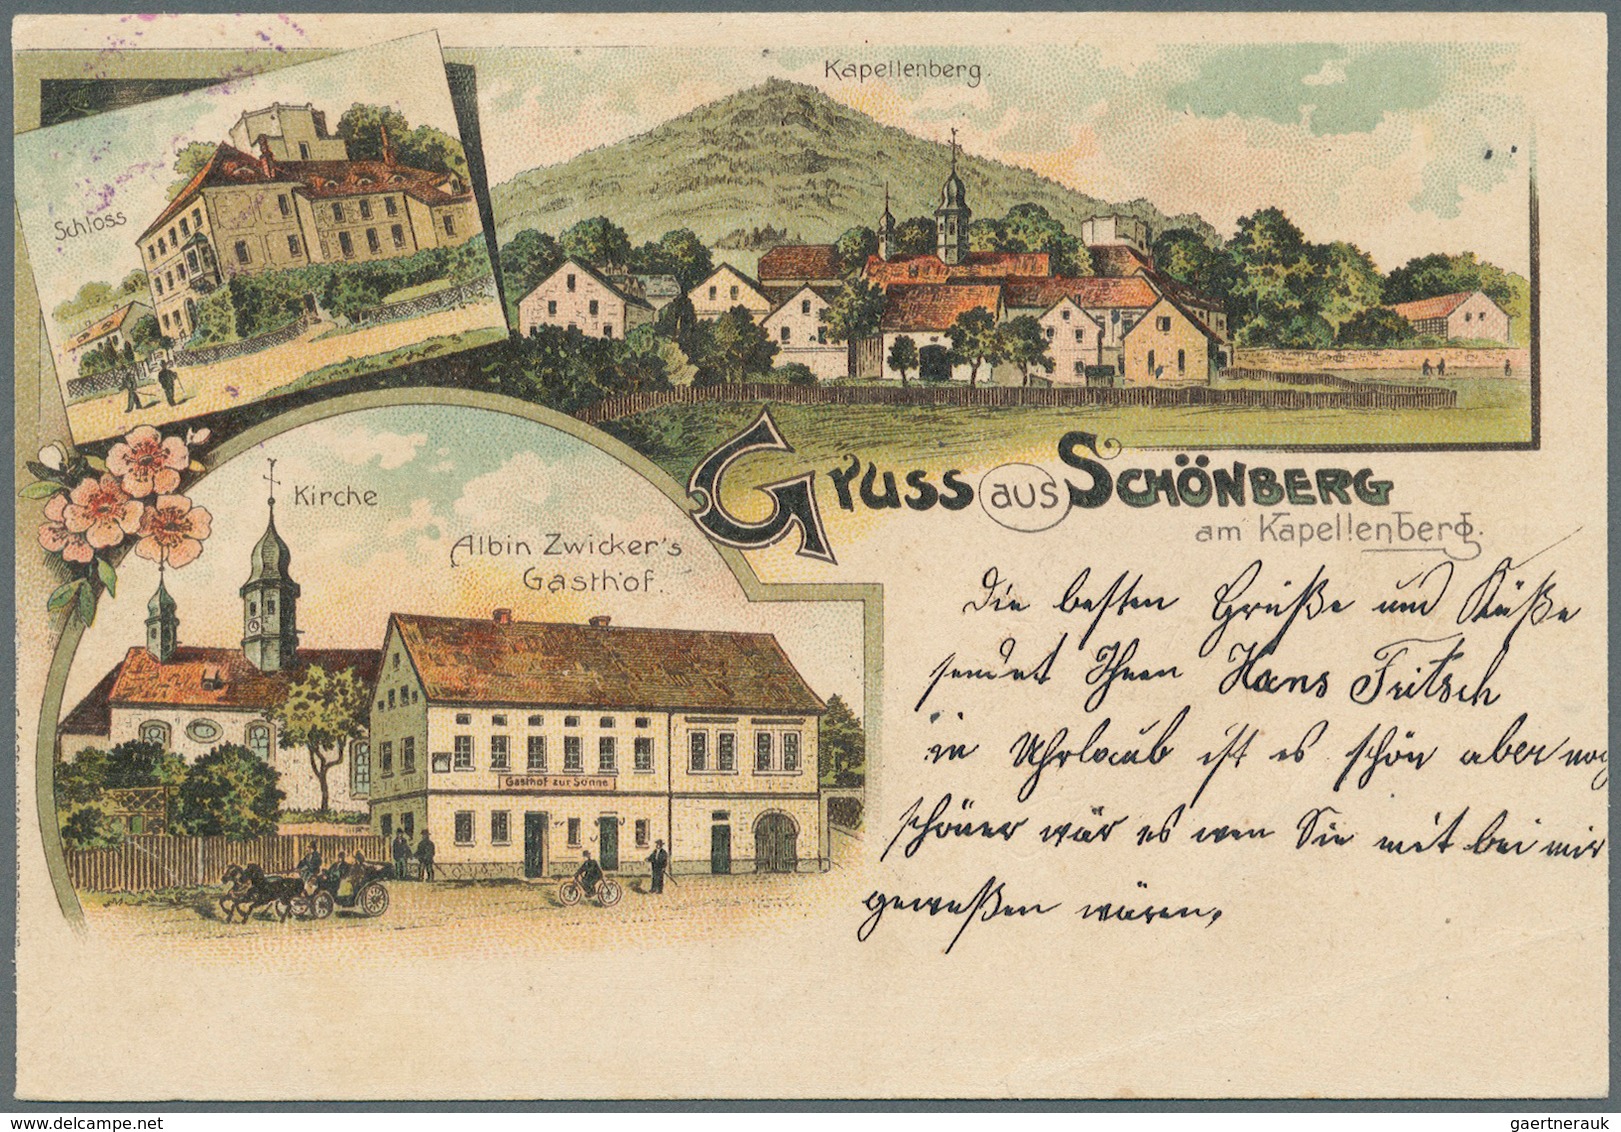 Kapellenberg.
Schloss
Gruss aus Schönberg
am Kapellenberg.
Kirche
Albin Zwicker's
Gasthof.
Gasthof zur Sonne
Die besten Grüße und Küße
sendet Ihnen Hans Fritsch
in Uhrlaub ist es schön aber noch
schöner wär es wen Sie mit bei mir
geweßen wären.
www.delcampe.net
gaertnerauk